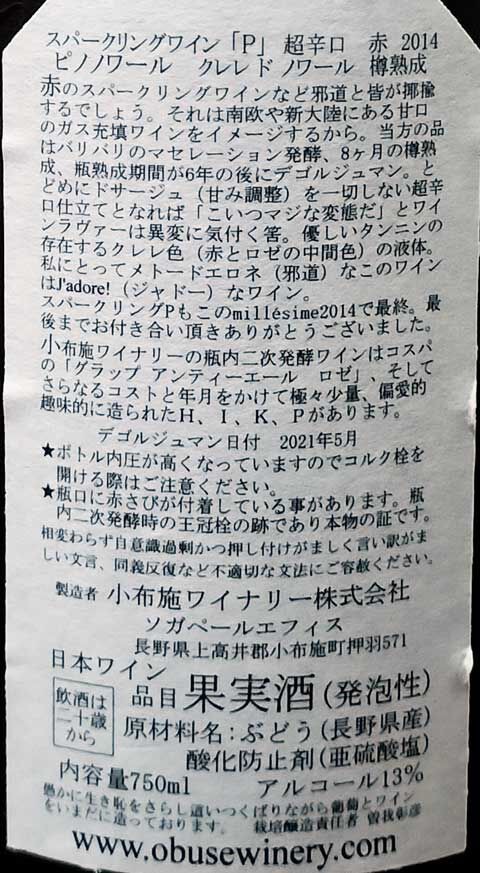 スパークリングワイン「P」 超辛口 赤 2014
ピノノワール クレレ ド ノワール 樽熟成
赤のスパークリングワインなど邪道と皆が揶揄
するでしょう。それは南欧や新大陸にある甘口
のガス充填ワインをイメージするから。当方の品
はバリバリのマセレーション発酵、8ヶ月の樽熟
成、瓶熟成期間が6年の後にデゴルジュマン。と
どめにドサージュ(甘み調整)を一切しない超辛
口仕立てとなれば「こいつマジな変態だ」とワイ
ンラヴァーは異変に気付く筈。優しいタンニンの
存在するクレレ色(赤とロゼの中間色)の液体。
私にとってメトードエロネ(邪道)なこのワイン
はJ'adore!(ジャドー)なワイン。
スパークリングPもこのmillésime2014で最終。最
後までお付き合い頂きありがとうございました。
小布施ワイナリーの瓶内二次発酵ワインはコスパ
の「グラップ アンティーエール ロゼ」、そして
さらなるコストと年月をかけて極々少量、偏愛的
趣味的に造られたH、I、K、Pがあります。
デゴルジュマン日付 2021年5月
★ボトル内圧が高くなっていますのでコルク栓を
開ける際はご注意ください。
★瓶口に赤さびが付着している事があります。瓶
内二次発酵時の王冠栓の跡であり本物の証です。
相変わらず自意識過剰かつ押し付けがましく言い訳がま
しい文言、同義反復など不適切な文法にご容赦ください。
製造者 小布施ワイナリー株式会社
ソガペールエフィス
長野県上高井郡小布施町押羽571
日本ワイン
飲酒は
二十歳
から
品目 果実酒(発泡性)
原材料名:ぶどう(長野県産)
酸化防止剤(亜硫酸塩)
内容量750ml アルコール13%
愚かに生き恥をさらし這いつくばりながら葡萄とワイン
をいまだに造っております。 栽培醸造責任者 曽我彰彦
www.obusewinery.com